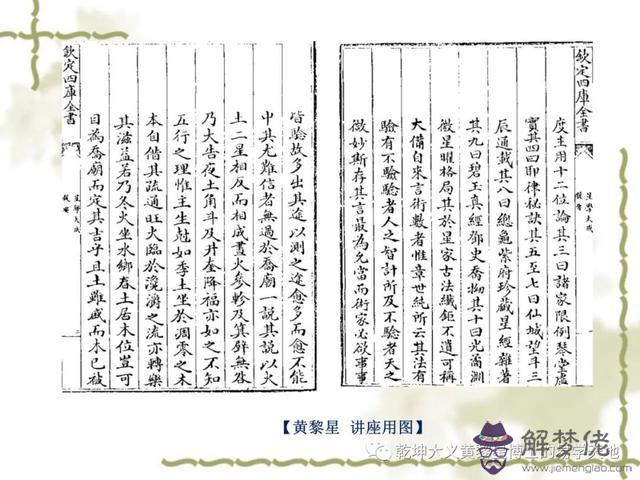 欽定四庫全書
星學大成
提要
度主用十二位論其三曰諸家限例琴堂虛
實其四曰耶律秘訣其五至七曰仙城望斗三
辰通載其八曰總龜紫府珍藏星經雜著
其九曰碧玉真經鄧史喬拗其十曰光裔淵
微星曜格局其於星家古法纎鉅不遺可稱
大備自來言術數者惟章世純所云其法有
驗有不驗驗者人之智計所及不驗者天之
微妙斯存其言最為允當而術家必欲事事
皆驗故多出其途以測之途愈多而愈不能
中其尤難信者無過於喬廟一說其說以火
土二星相反而相成晝火參軫及箕壁無咎
乃大吉夜土角斗及井奎降福亦如之不知
五行之理惟主生尅如季土坐於凋零之木
本自偕其疏通旺火臨於溪澗之流亦轉樂
其滋益若乃冬火坐水鄉春土居木位豈可
目為喬廟而定其吉乎且土雖戚而木已被
欽定四庫全書
星學大成
提要
【黄黎星 讲座用图】
乾坤大义黄黎星博士的易学天地
解梦佬
www.jiemenglao.com